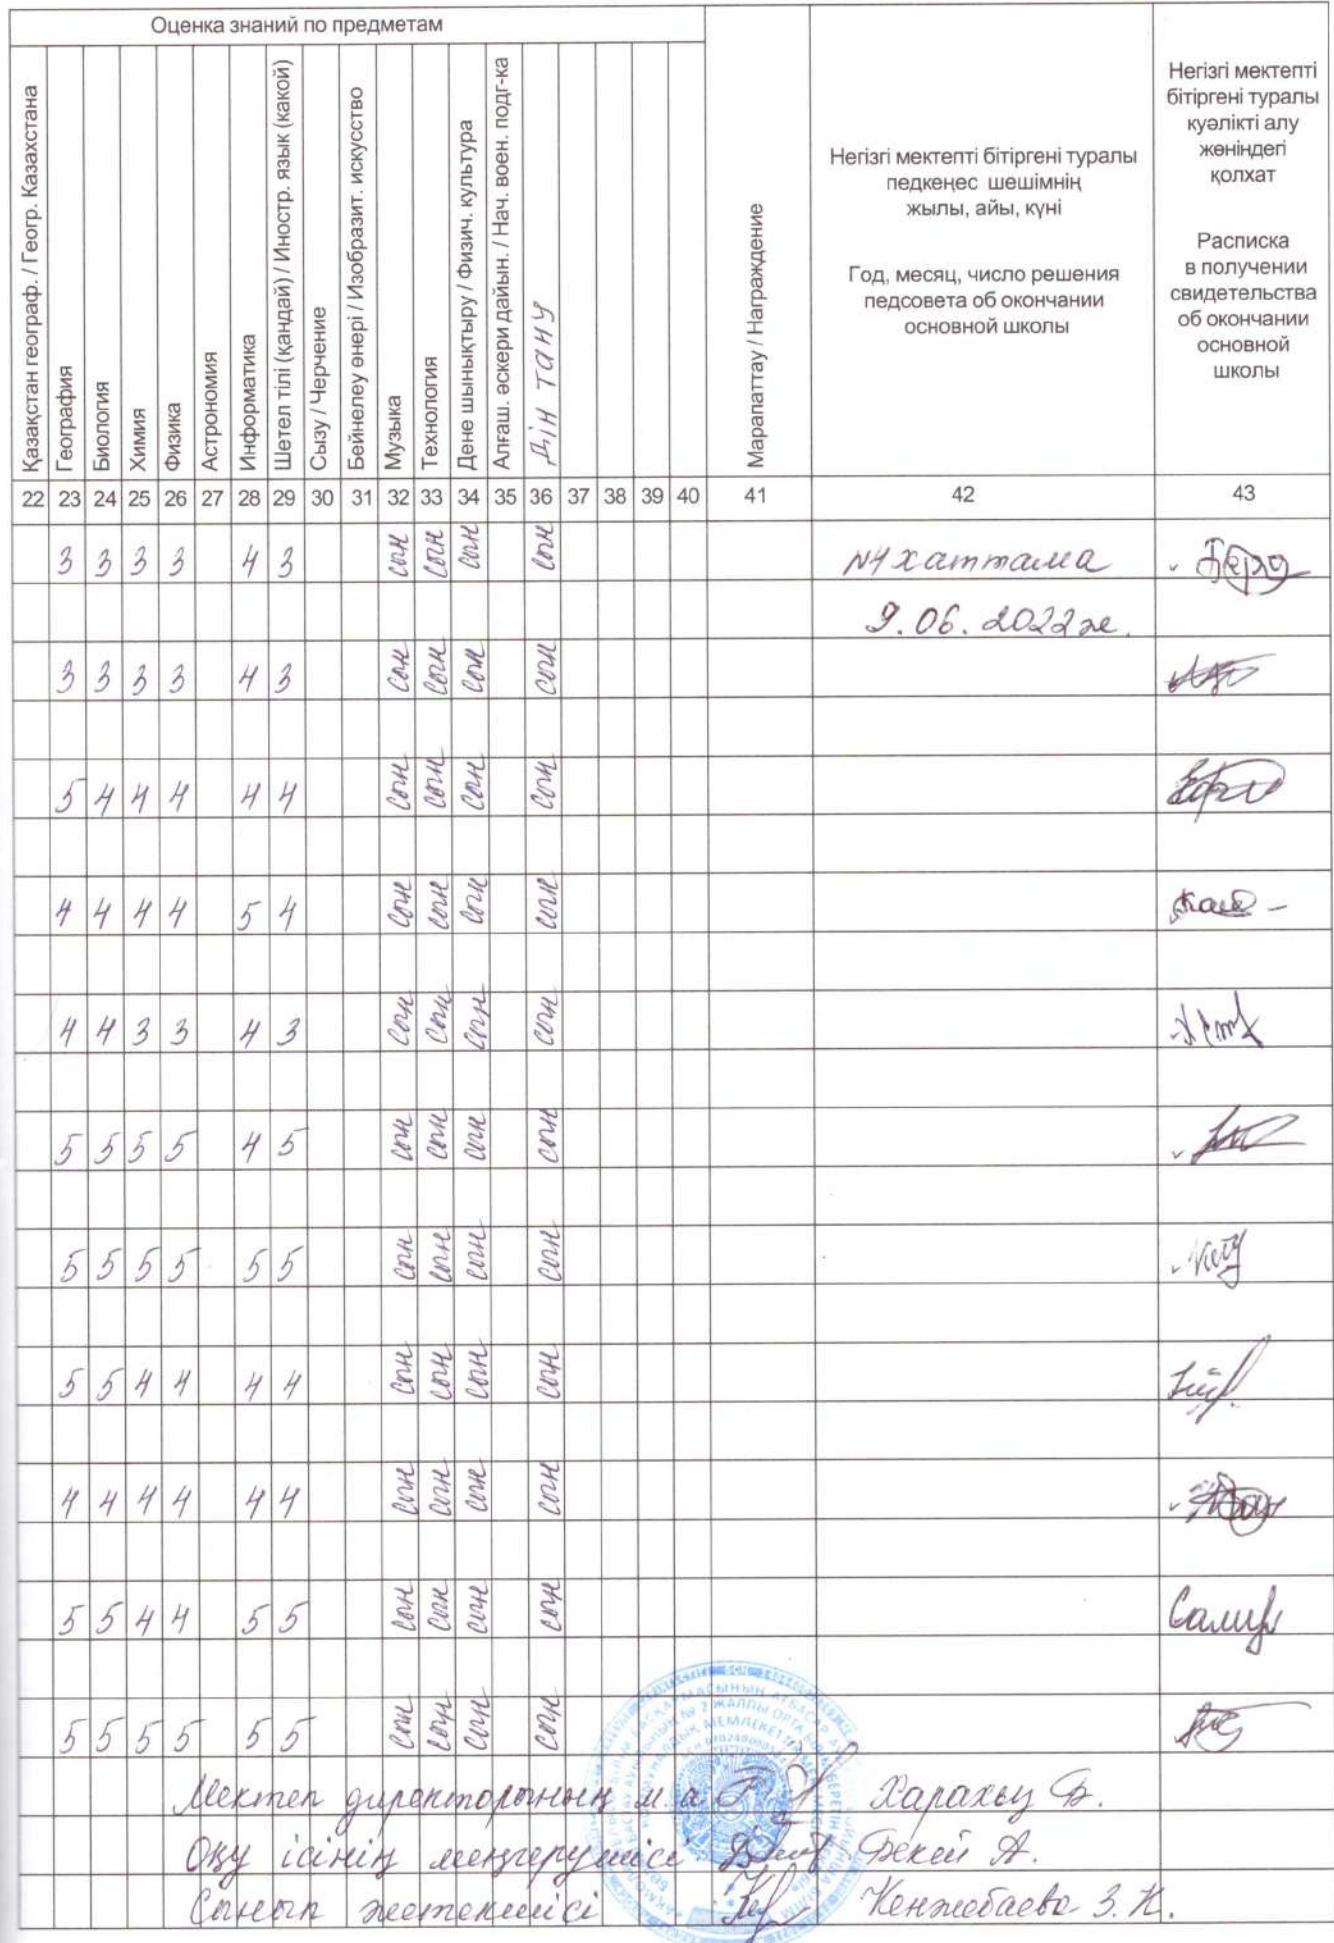 Оценка знаний по предметам
Қазақстан географ. / Геогр. Казахстана
География
Биология
Химия
Физика
Астрономия
Информатика
Шетел тілі (қандай) / Иностр. язык (какой)
Сызу / Черчение
Бейнелеу өнері / Изобразит. искусство
Музыка
Технология
Дене шынықтыру / Физич. культура
Алғаш. әскери дайын. / Нач. воен. подг-ка
Дін тану
Марапаттау / Награждение
Негізгі мектепті бітіргені туралы
педкеңес шешімнің
жылы, айы, күні
Год, месяц, число решения
педсовета об окончании
основной школы
Негізгі мектепті
бітіргені туралы
куәлікті алу
жөніндегі
қолхат
Расписка
в получении
свидетельства
об окончании
основной
школы
22 23 24 25 26 27 28 29 30 31 32 33 34 35 36 37 38 39 40 41 42 43
3 3 3 3 4 3 сын сын сын сын №4 хаттама
9.06.2022 ж.
3 3 3 3 4 3 сын сын сын сын
5 4 4 4 4 4 сын сын сын сын
4 4 4 4 5 4 сын сын сын сын
4 4 3 3 4 3 сын сын сын сын
5 5 5 5 4 5 сын сын сын сын
5 5 5 5 5 5 сын сын сын сын
5 5 4 4 4 4 сын сын сын сын
4 4 4 4 4 4 сын сын сын сын
5 5 4 4 5 5 сын сын сын сын
5 5 5 5 5 5 сын сын сын сын
Мектеп директорының м.а. Харахыц Ф.
Оқу ісінің меңгерушісі Бекей А.
Сынып жетекшісі Кенжебаева З.К.